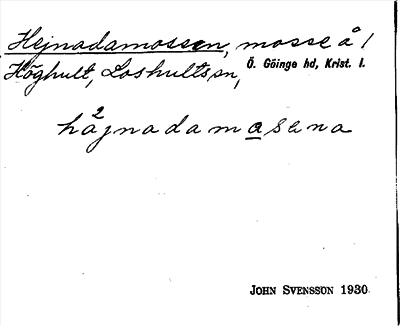 Hejnadamossen, mosse å /
Höghult, Loshults sn, Ö. Göinge hd, Krist. l.
hå2jnadamasana
JOHN SVENSSON 1930.